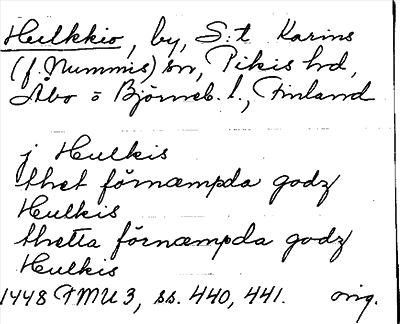 Hulkkio, by, S:t Karins
(f. Nummis) sn, Pikis hd,
Åbo o Björneb. l., Finland
j Hulkis
thet förnæmpda godz
Hulkis
thetta förnæmpda godz
Hulkis
1448 FMU 3, ss. 440, 441. orig.